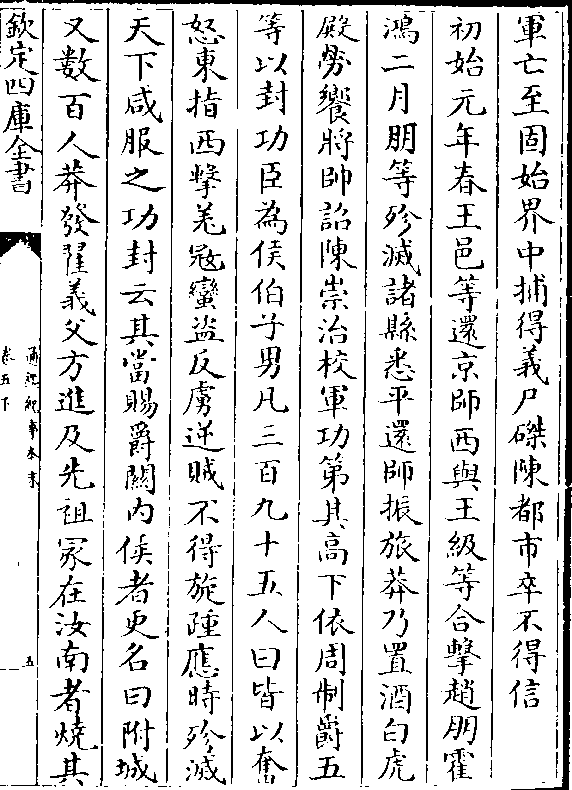 軍亡至固始界中捕得義尸磔陳都市卒不得信
初始元年春王邑等還京師西與王級等合擊趙朋霍
鴻二月朋等殄滅諸縣悉平還師振旅莽乃置酒白虎
殿勞饗將帥詔陳崇治校軍功第其高下依周制爵五
等以封功臣為侯伯子男凡三百九十五人曰皆以奮
怒東指西擊羌寇蠻盜反虜逆賊不得旋踵應時殄滅
天下咸服之功封云其當賜爵關内侯者更名曰附城
又數百人莽發翟義父方進及先祖冢在汝南者燒其
欽定四庫全書
通鑑紀事本末
卷五下
五